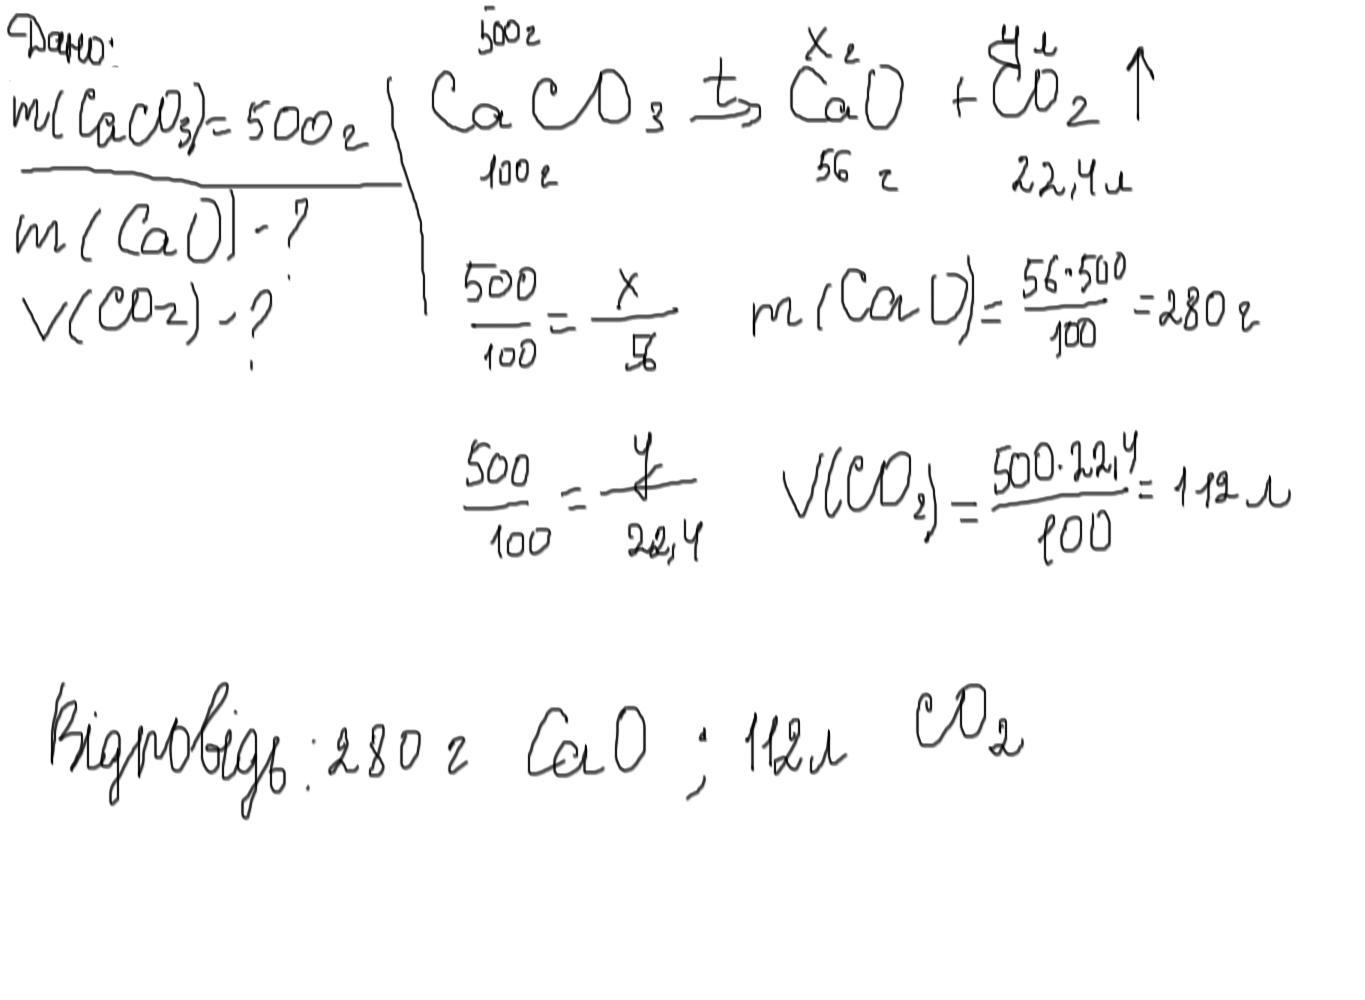 Дано:
m(CaCO₃)=500г
m(CaO)-?
V(CO₂)-?
500г x г y л
CaCO₃ t→ CaO + CO₂ ↑
100г 56 г 22,4л
500/100 = x/56 m(CaO)= 56·500/100 =280г
500/100 = y/22,4 V(CO₂)= 500·22,4/100 = 112л
Відповідь: 280 г CaO ; 112л CO₂